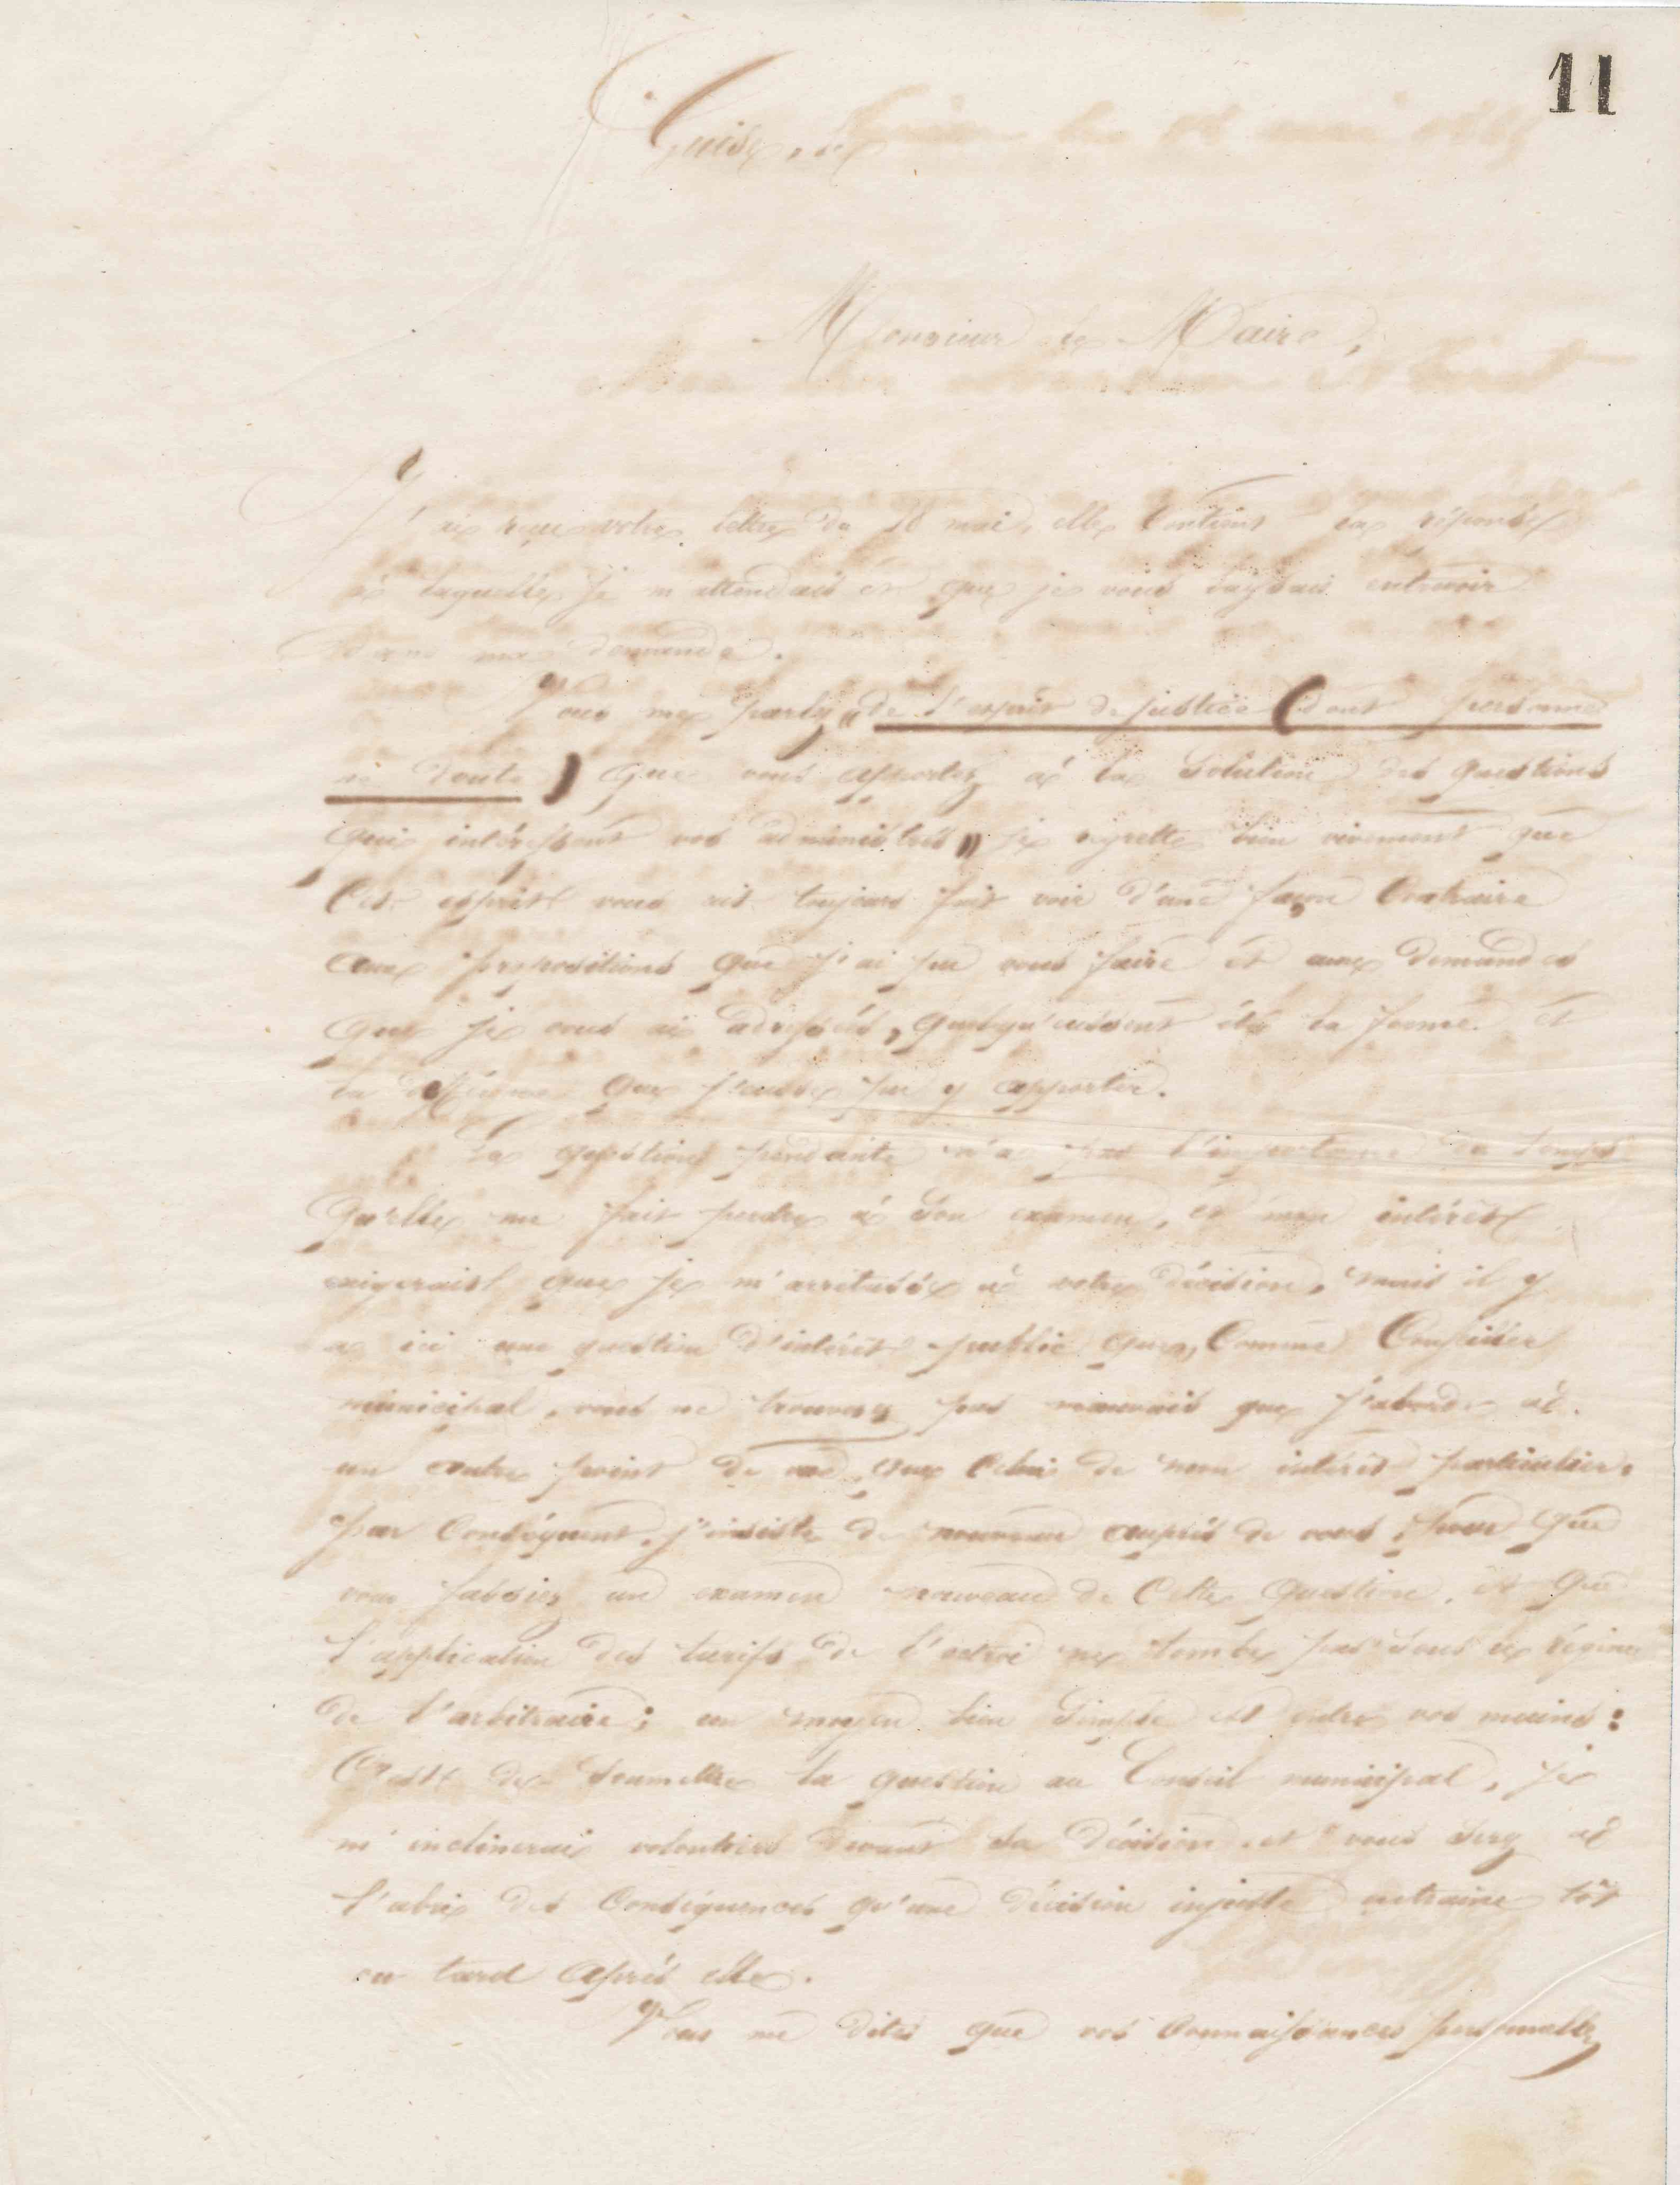 11
Guise, le
Monsieur le Maire,
J'ai reçu votre lettre du 28 mai, elle contient la réponse
à laquelle je m'attendais et que je vous laissais entrevoir
dans ma demande.
Vous me parlez "de l'esprit de justice (dont personne
ne doute) que vous apportez à la solution des questions
qui intéressent vos administrés" je regrette bien vivement que
cet esprit vous ait toujours fait voir d'une façon contraire
aux propositions que j'ai pu vous faire et aux demandes
que je vous ai adressées, quelqu'eussent été la forme et
la que j'eusse pu y apporter.
La question pendante n'a pas l'importance du temps
qu'elle me fait perdre à son examen, et mon intérêt
exigerait que je m'arrêtasse à votre décision, mais il y
a ici une question d'intérêt public que, comme Conseiller
municipal, vous ne trouverez pas mauvais que j'aborde à
un autre point de vue que celui de mon intérêt particulier.
Par conséquent, j'insiste de nouveau auprès de vous, pour que
vous fassiez un examen nouveau de cette question, et que
l'application des tarifs de l'octroi ne tombe pas sous le régime
de l'arbitraire; un moyen bien simple est entre vos mains:
C'est de soumettre la question au Conseil municipal, je
m'inclinerai volontiers devant sa décision et vous serez à
l'abri des conséquences qu'une décision injuste entraine tôt
ou tard après elle.
Vous me dites que vos connaissances personnelles